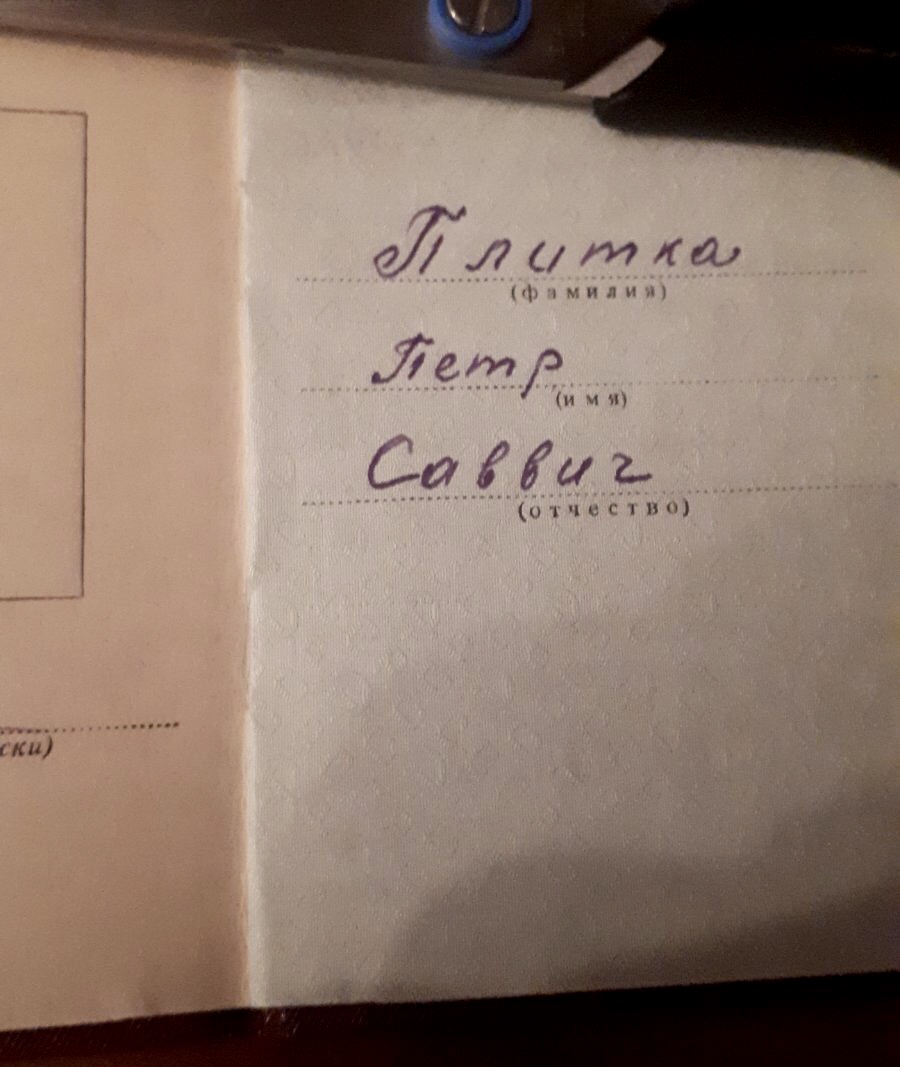 Плитка
(фамилия)
Петр
(имя)
Саввич
(отчество)
ски)